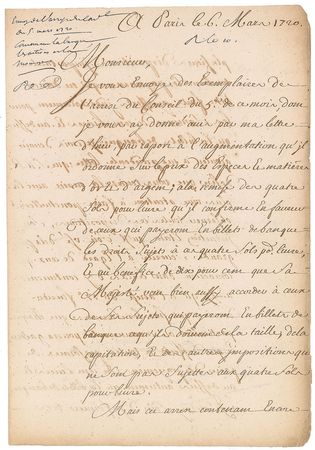 Envoy de l'arrest du Conseil
du 5 mars 1720
Concernant la banque
A Paris le 6. Mars 1720.
R le 10.
Monsieur,
Je vous Envoye des Exemplaires de
l'arrest du Conseil du 5. de ce mois, dont
je vous ay donné avis par ma lettre
d'hier par raport à l'augmentation qu'il
ordonne sur le prix des especes et matieres
d'or et d'argent, a la remise des quatre
sols pour livre, qu'il confirme En faveur
de ceux qui payeront en billets de banque
les droits sujets à ces quatre sols po. livre,
Et au benefice de dix pour cent que sa
Majesté veut bien accorder à ceux
de ses sujets qui payeront en billets de
banque ce qu'ils doivent de la taille, de la
capitation, Et des autres impositions qui
ne sont pas sujettes aux quatre sols
pour livre.
Mais cet arrest contenant Encore